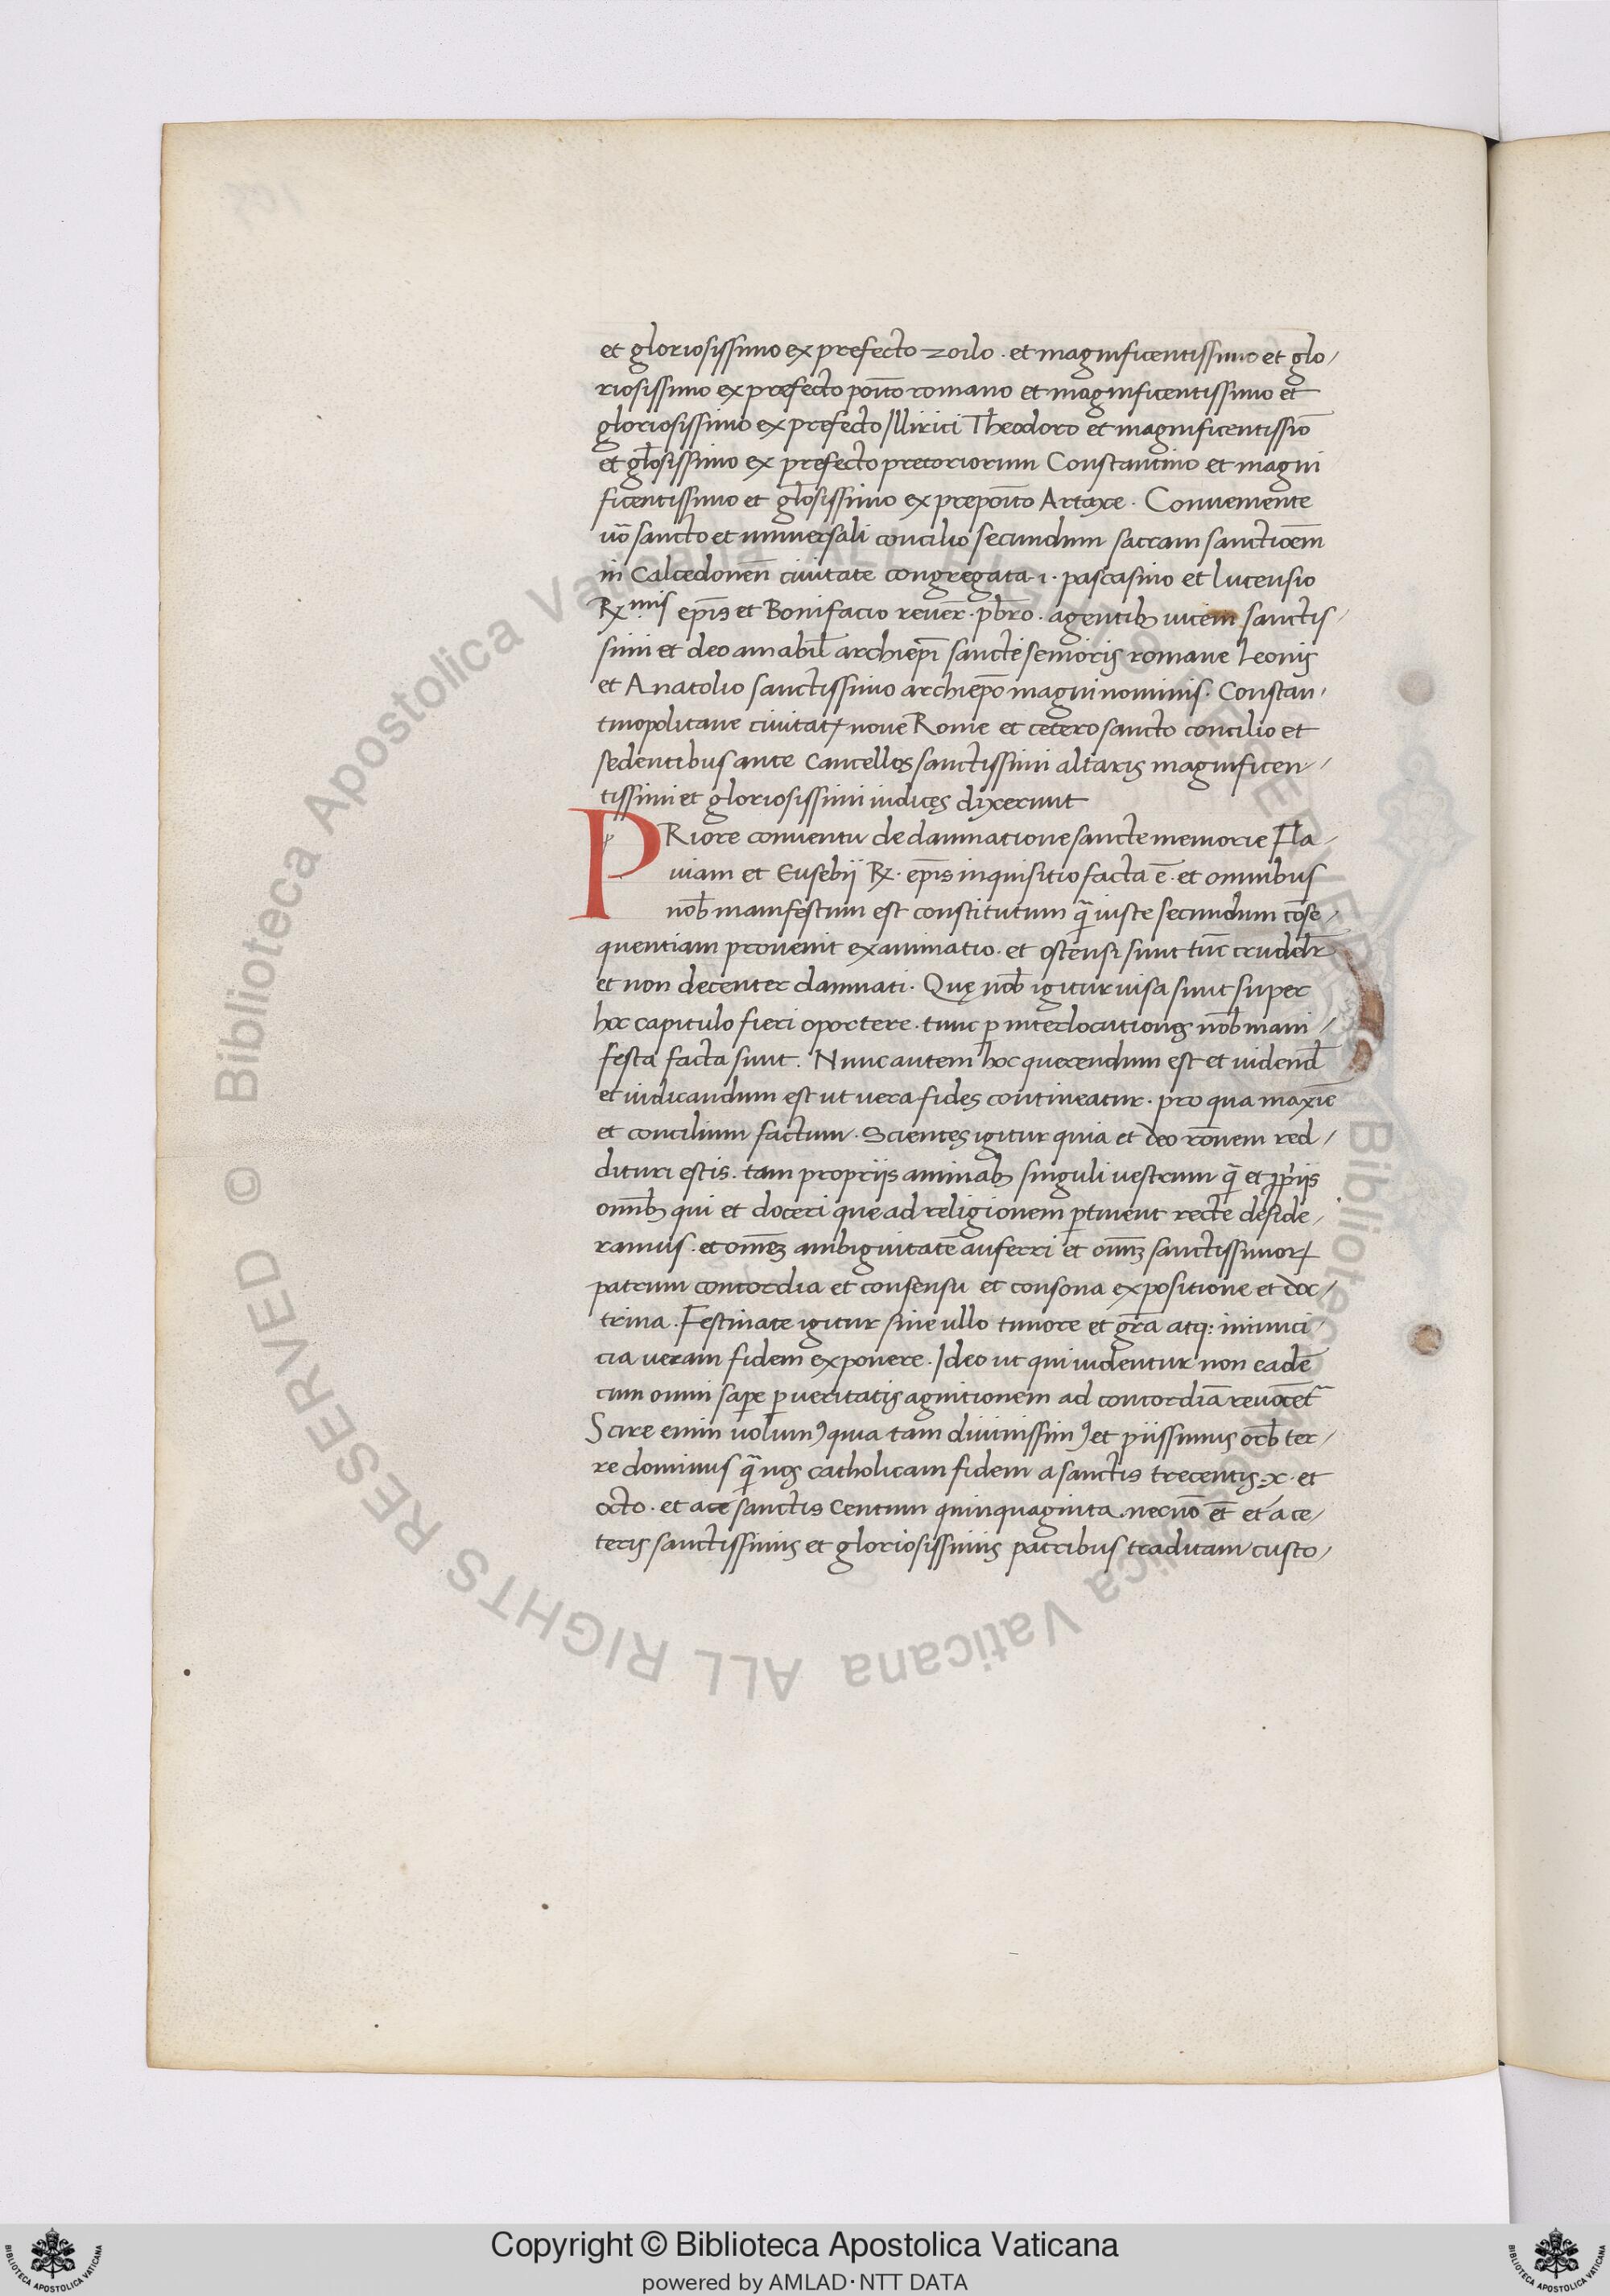 et gloriosissimo ex prefecto zoilo . et magnificentissimo et glo /
riosissimo ex prefecto põito romano et magnificentissimo et
gloriosissimo ex prefecto Illirici Theodoro et magnificentissiõ
et gl̃osissimo ex prefecto pretoriorum Constantino et magni
ficentissimo et gl̃osissimo ex prepõito Artaxe . Conueniente
uõ sancto et uniuersali concilio secundum sacram sanctiõem
in Calcedoneñ ciuitate congregata .1. pascasino et lucensio
Rx.mis ep̃is et Bonifacio reuer̃ . pb̃ro . agentib; uicem sanctis /
simi et deo amabil̃ archiep̃i sancte senioris romane Leonis
et Anatolio sanctissimo archiep̃o magni nominis . Constan /
tinopolitane ciuitatꝭ noue Rome et cetero sancto concilio et
sedentibus ante Cancellos sanctissimi altaris magnificen /
tissimi et gloriosissimi iudicęs dixerunt
PRiore conuentu de damnatione sancte memorie Fla /
uiam et Eusebij Rx . ep̃is inquisitio facta ẽ . et omnibus
nob̃ manifestum est constitutum q̃ iuste secundum cõse /
quentiam prouenit examinatio . et ostensi sunt tũc crudelr̃
et non decenter damnati . Quę nob̃ igitur uisa sunt super
hoc capitulo fieri oportere . tunc ꝑ interlocutiones nob̃ mani /
festa facta sunt . Nunc autem hoc querendum est et uidend̃
et iudicandum est ut uera fides contineatur . pro qua maxiẽ
et concilium factum . Scientęs igitur quia et deo rõnem red /
dituri estis . tam propriis animab; singuli uestrum q̃ et ꝓpiis
omĩb; qui et doceri que ad religionem ꝑtinent recte deside /
ramus . et omẽz ambiguitatẽ auferri et omĩz sanctissimoꝝ
patrum concordia et consensu et consona expositione et doc /
trina . Festinate igitur sine ullo timore et gr̃a atq: inimici /
cia ueram fidem exponere . Ideo ut qui uidentur non eadẽ
cum omni sape ꝑ ueritatis agnitionem ad concordiã reuocẽt̃
Scire enim uolumꝰ quia tam diuinissimꝰ et piissimus orb̃ ter /
re dominus q̃ nos catholicam fidem a sanctis trecentis .x. et
octo . et a ce sanctis Centum quinquaginta . necnõ et̃ et a ce /
teris sanctissimis et gloriosissimis patribus traditam custo /
Copyright © Biblioteca Apostolica Vaticana
powered by AMLAD·NTT DATA